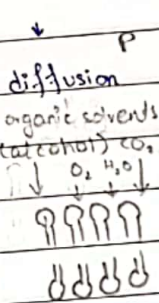 P
diffusion
organic solvents
(alcohol) CO₂
O₂ H₂O